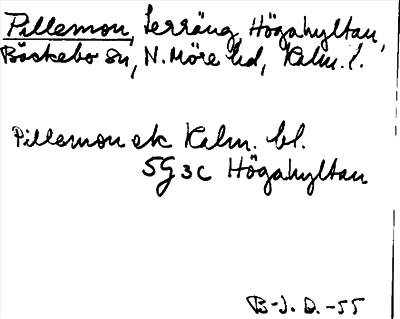 Pillemon, Terräng, Högahyltan,
Bäckebo sn, N. Möre hd, Kalm. l.
Pillemon ek Kalm. bl.
5G 3c Högahyltan
B-J. D. -55